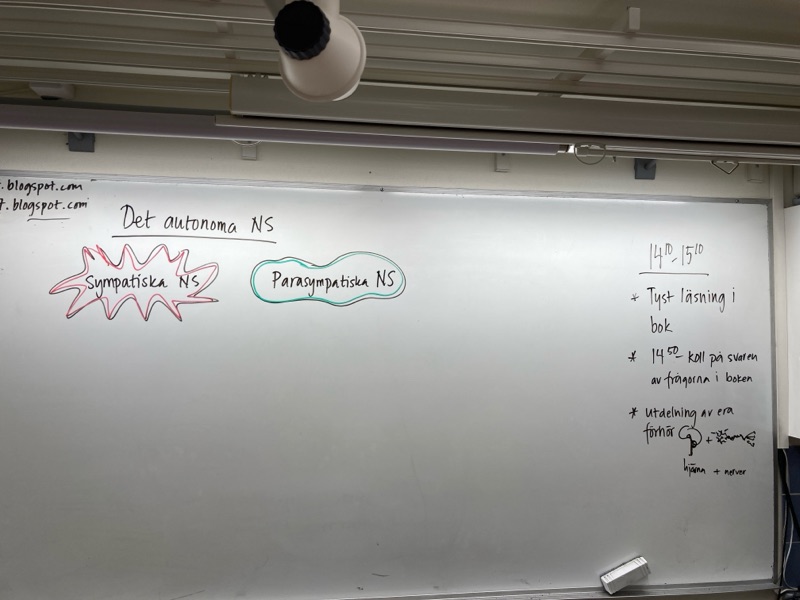 .blogspot.com
7.blogspot.com
Det autonoma NS
Sympatiska NS
Parasympatiska NS
14¹⁰-15¹⁰
* Tyst läsning i
bok
* 14⁵⁰- koll på svaren
av frågorna i boken
* Utdelning av era
förhör +
hjärna + nerver